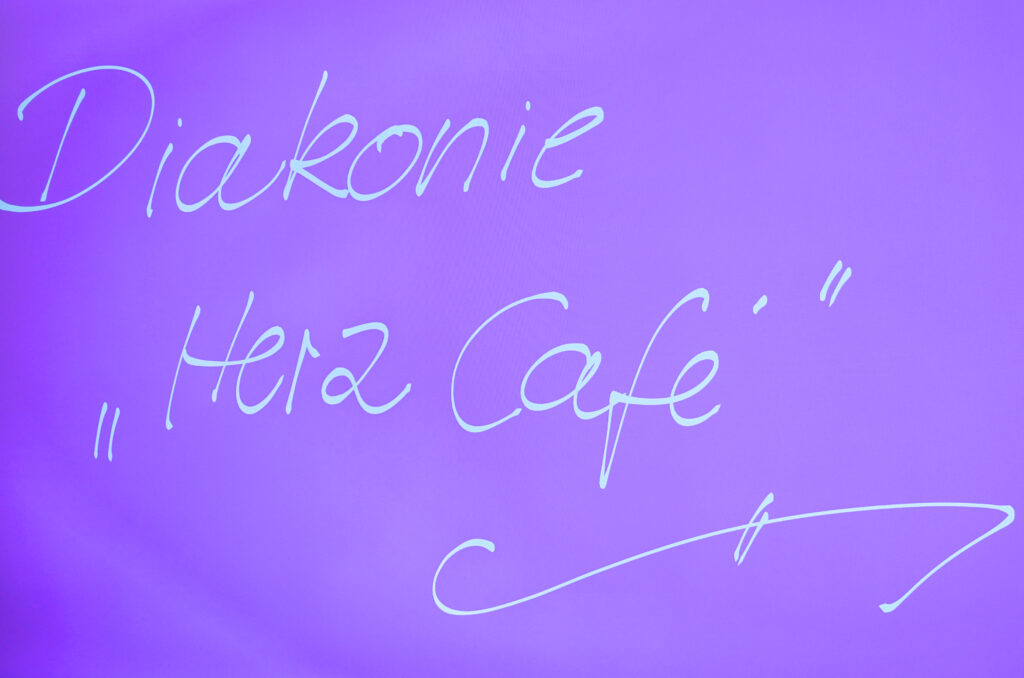 Diakonie
„Herz Café"